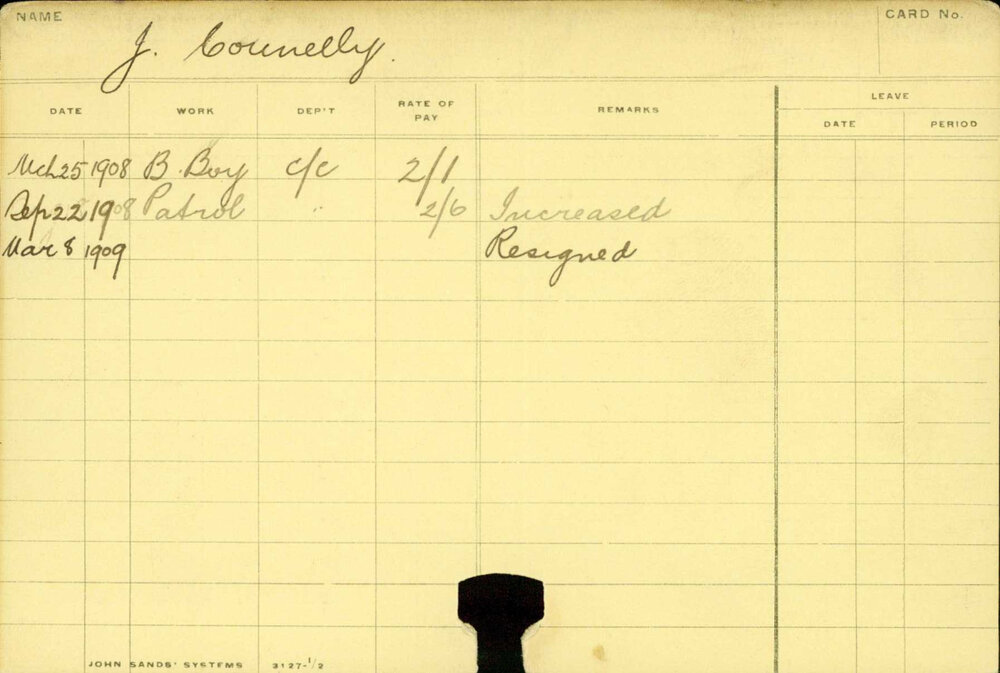 NAME
CARD No.
J. Connelly.
DATE WORK DEP'T RATE OF PAY REMARKS LEAVE
DATE PERIOD
Mch 25 1908 B. Boy c/c 2/1
Sep 22 1908 Patrol " 2/6 Increased
Mar 8 1909 Resigned
JOHN SANDS' SYSTEMS 3127-1/2